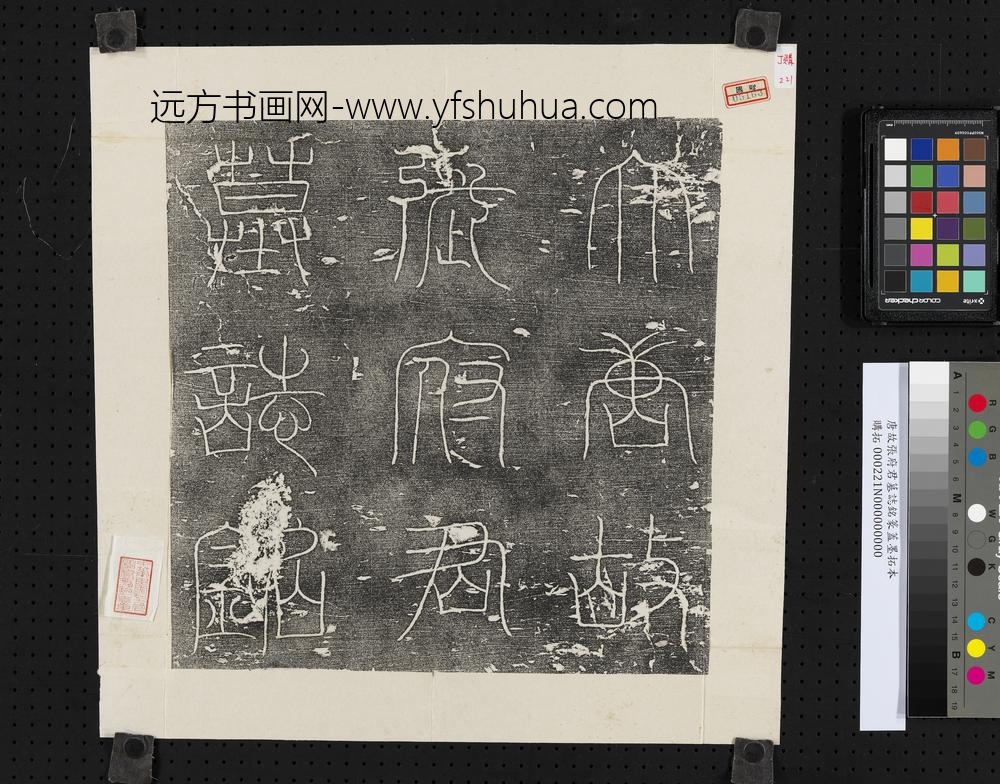 远方书画网-www.yfshuhua.com
大唐故
張府君
墓誌銘
221
唐故張府君墓誌銘篆蓋墨拓本
購拓 000221N000000000
x-rite
colorchecker
R
G
B
W
G
K
C
Y
M
A 1 2 3 4 5 6 M 8 9 10 11 12 13 14 15 B 17 18 19